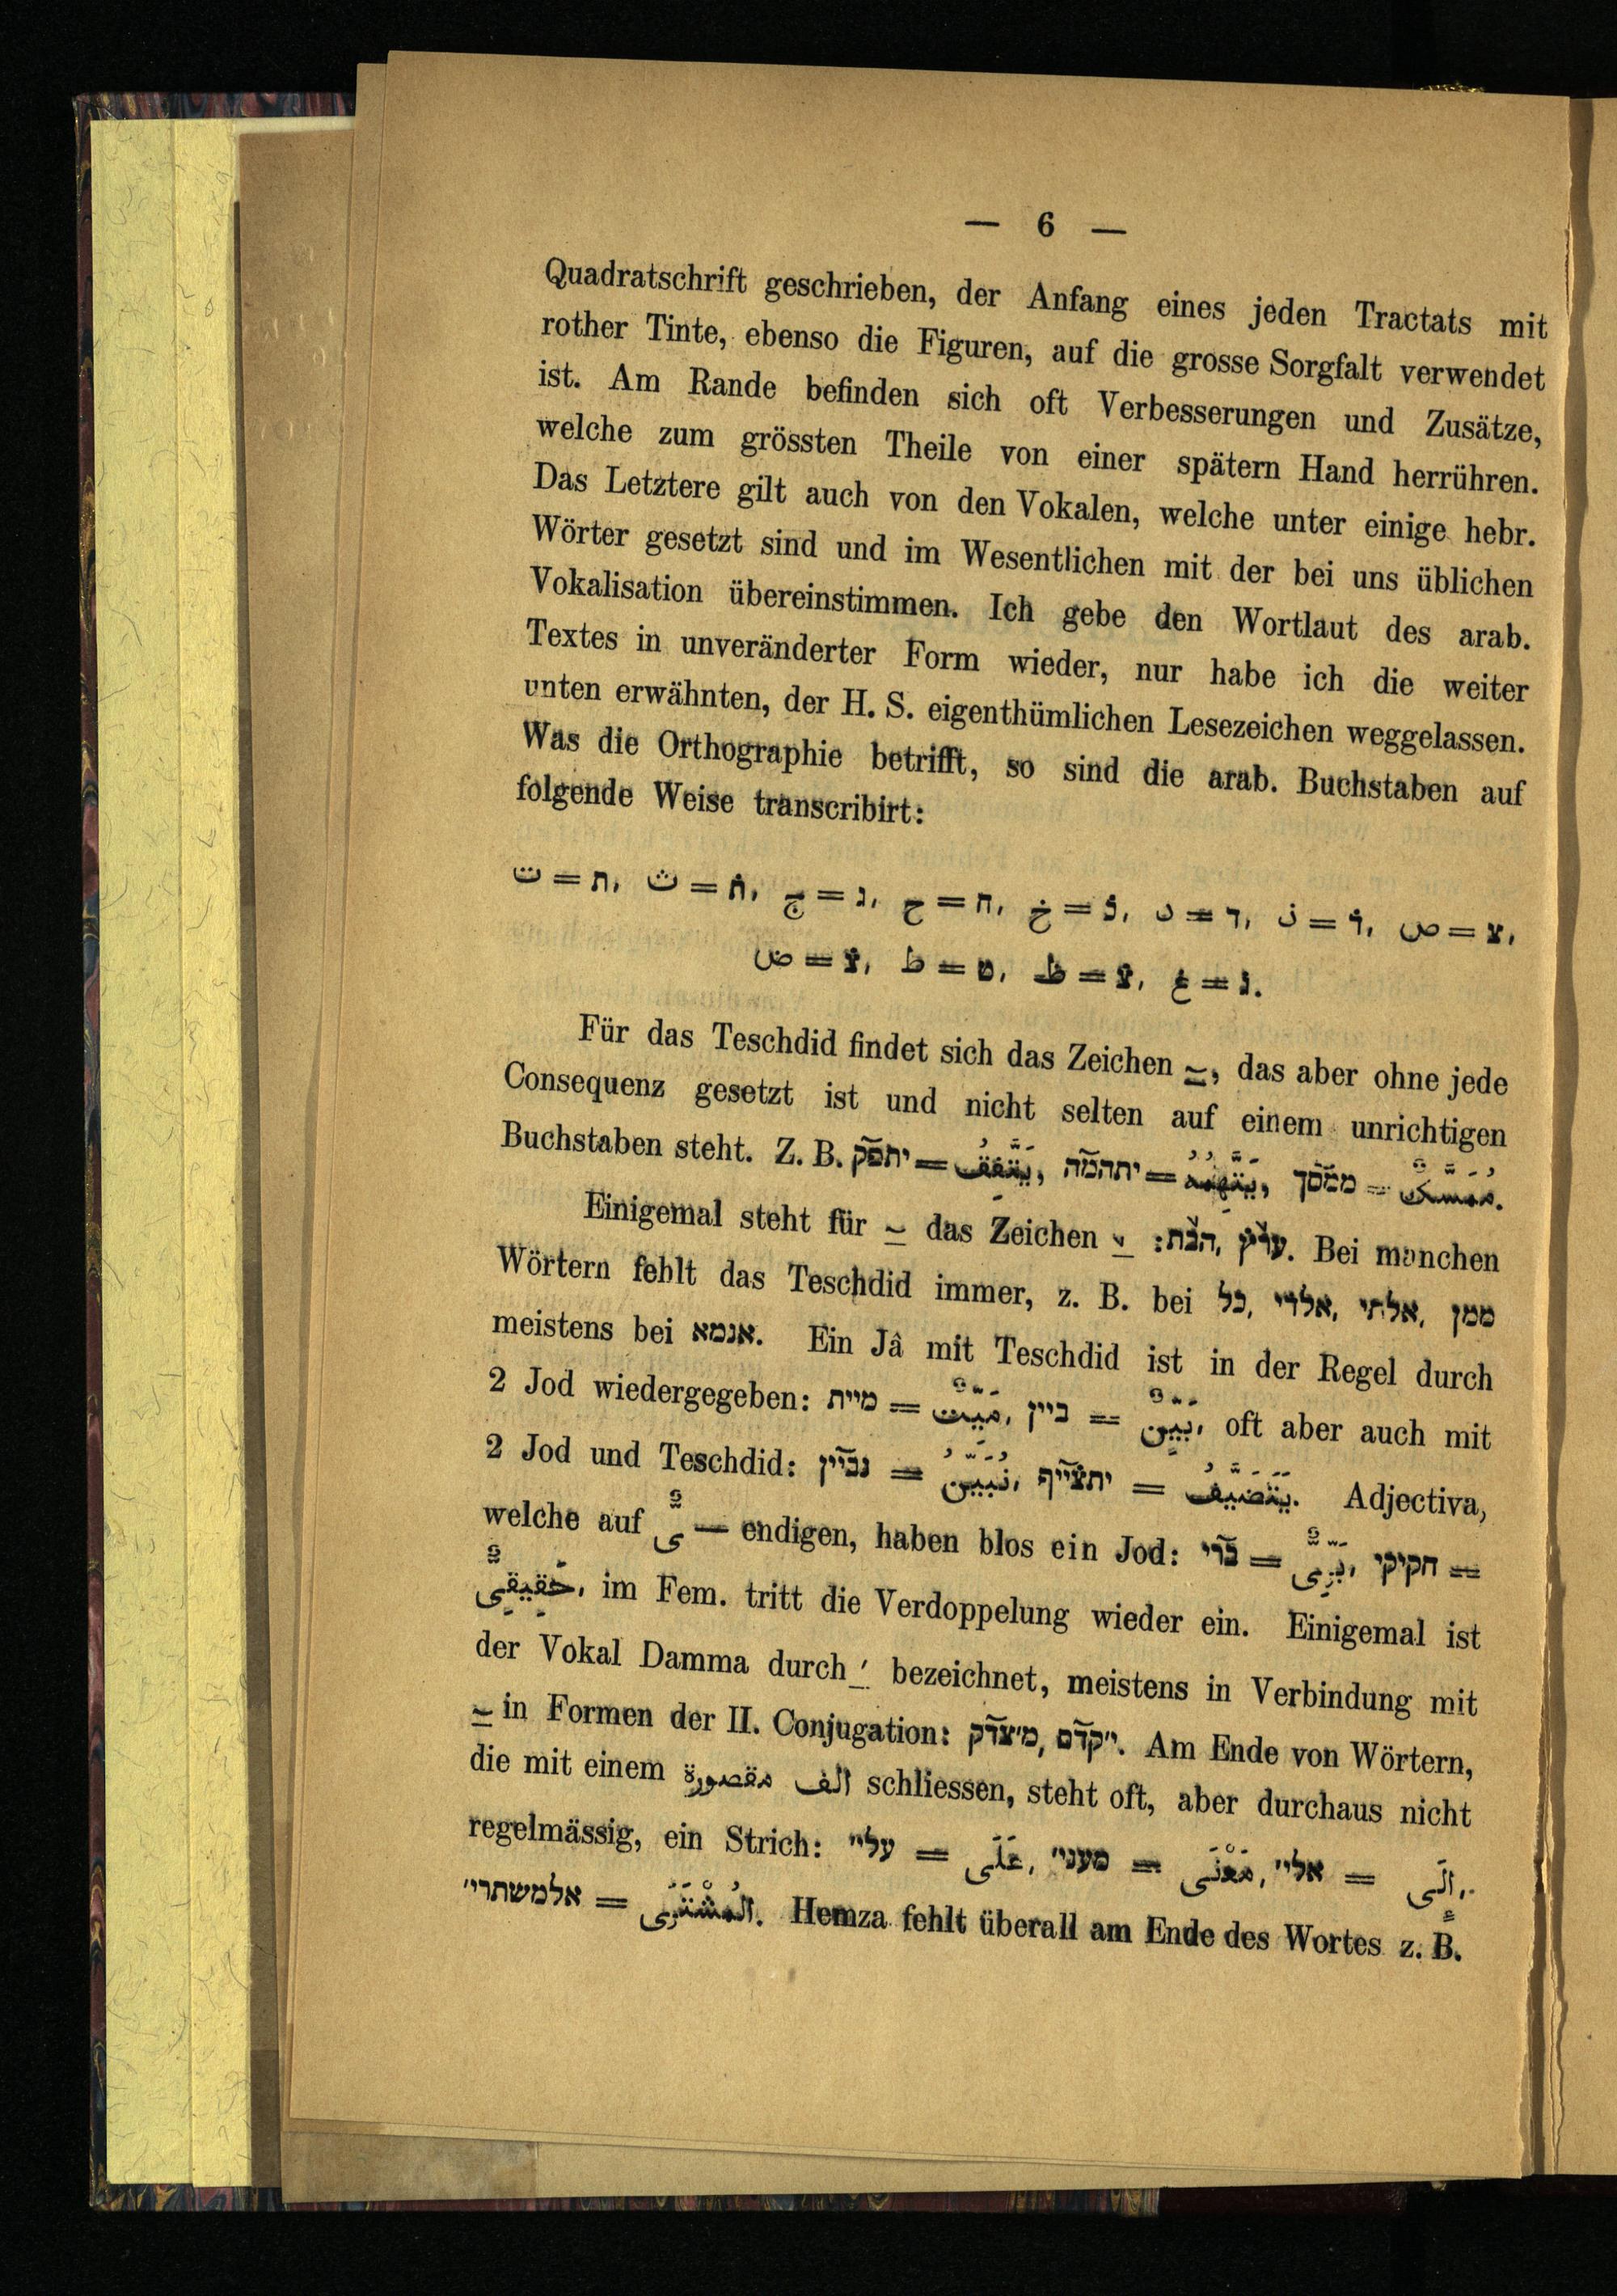 — 6 —
Quadratschrift geschrieben, der Anfang eines jeden Tractats mit
rother Tinte, ebenso die Figuren, auf die grosse Sorgfalt verwendet
ist. Am Rande befinden sich oft Verbesserungen und Zusätze,
welche zum grössten Theile von einer spätern Hand herrühren.
Das Letztere gilt auch von den Vokalen, welche unter einige hebr.
Wörter gesetzt sind und im Wesentlichen mit der bei uns üblichen
Vokalisation übereinstimmen. Ich gebe den Wortlaut des arab.
Textes in unveränderter Form wieder, nur habe ich die weiter
unten erwähnten, der H. S. eigenthümlichen Lesezeichen weggelassen.
Was die Orthographie betrifft, so sind die arab. Buchstaben auf
folgende Weise transcribirt:
ت = ת, ث = ת̇, ج = ג, ح = ח, خ = כ̇, د = ד, ذ = ד̇, ص = צ,
ض = צ̇, ط = ט, ظ = צ̇, غ = ג̇.
Für das Teschdid findet sich das Zeichen ⌣, das aber ohne jede
Consequenz gesetzt ist und nicht selten auf einem unrichtigen
Buchstaben steht. Z. B. יתפק = يَتَّفِقُ, יתהמה = يَتَّهِمُهُ, ממסך = مُمَسَّكٌ.
Einigemal steht für ⌣ das Zeichen ˅: הבת, ערץ. Bei manchen
Wörtern fehlt das Teschdid immer, z. B. bei כל, אלדי, אלתי, ממן
meistens bei אנמא. Ein Jâ mit Teschdid ist in der Regel durch
2 Jod wiedergegeben: מיית = مَيِّتٌ, ביין = بَيِّنٌ, oft aber auch mit
2 Jod und Teschdid: נביין = نُبَيِّنُ, יתצ̇ייף = يَتَضَيَّفُ. Adjectiva,
welche auf ىٌّ — endigen, haben blos ein Jod: ברי = بَرِّىٌّ, חקיקי =
حَقِيقِىٌّ, im Fem. tritt die Verdoppelung wieder ein. Einigemal ist
der Vokal Damma durch ׳ bezeichnet, meistens in Verbindung mit
⌣ in Formen der II. Conjugation: מ׳צדק, י׳קדם. Am Ende von Wörtern,
die mit einem الف مقصورة schliessen, steht oft, aber durchaus nicht
regelmässig, ein Strich: עלי׳ = عَلَى, מעני׳ = مَعْنَى, אלי׳ = إِلَى,
אלמשתרי׳ = المُشْتَرَى. Hemza fehlt überall am Ende des Wortes z. B.